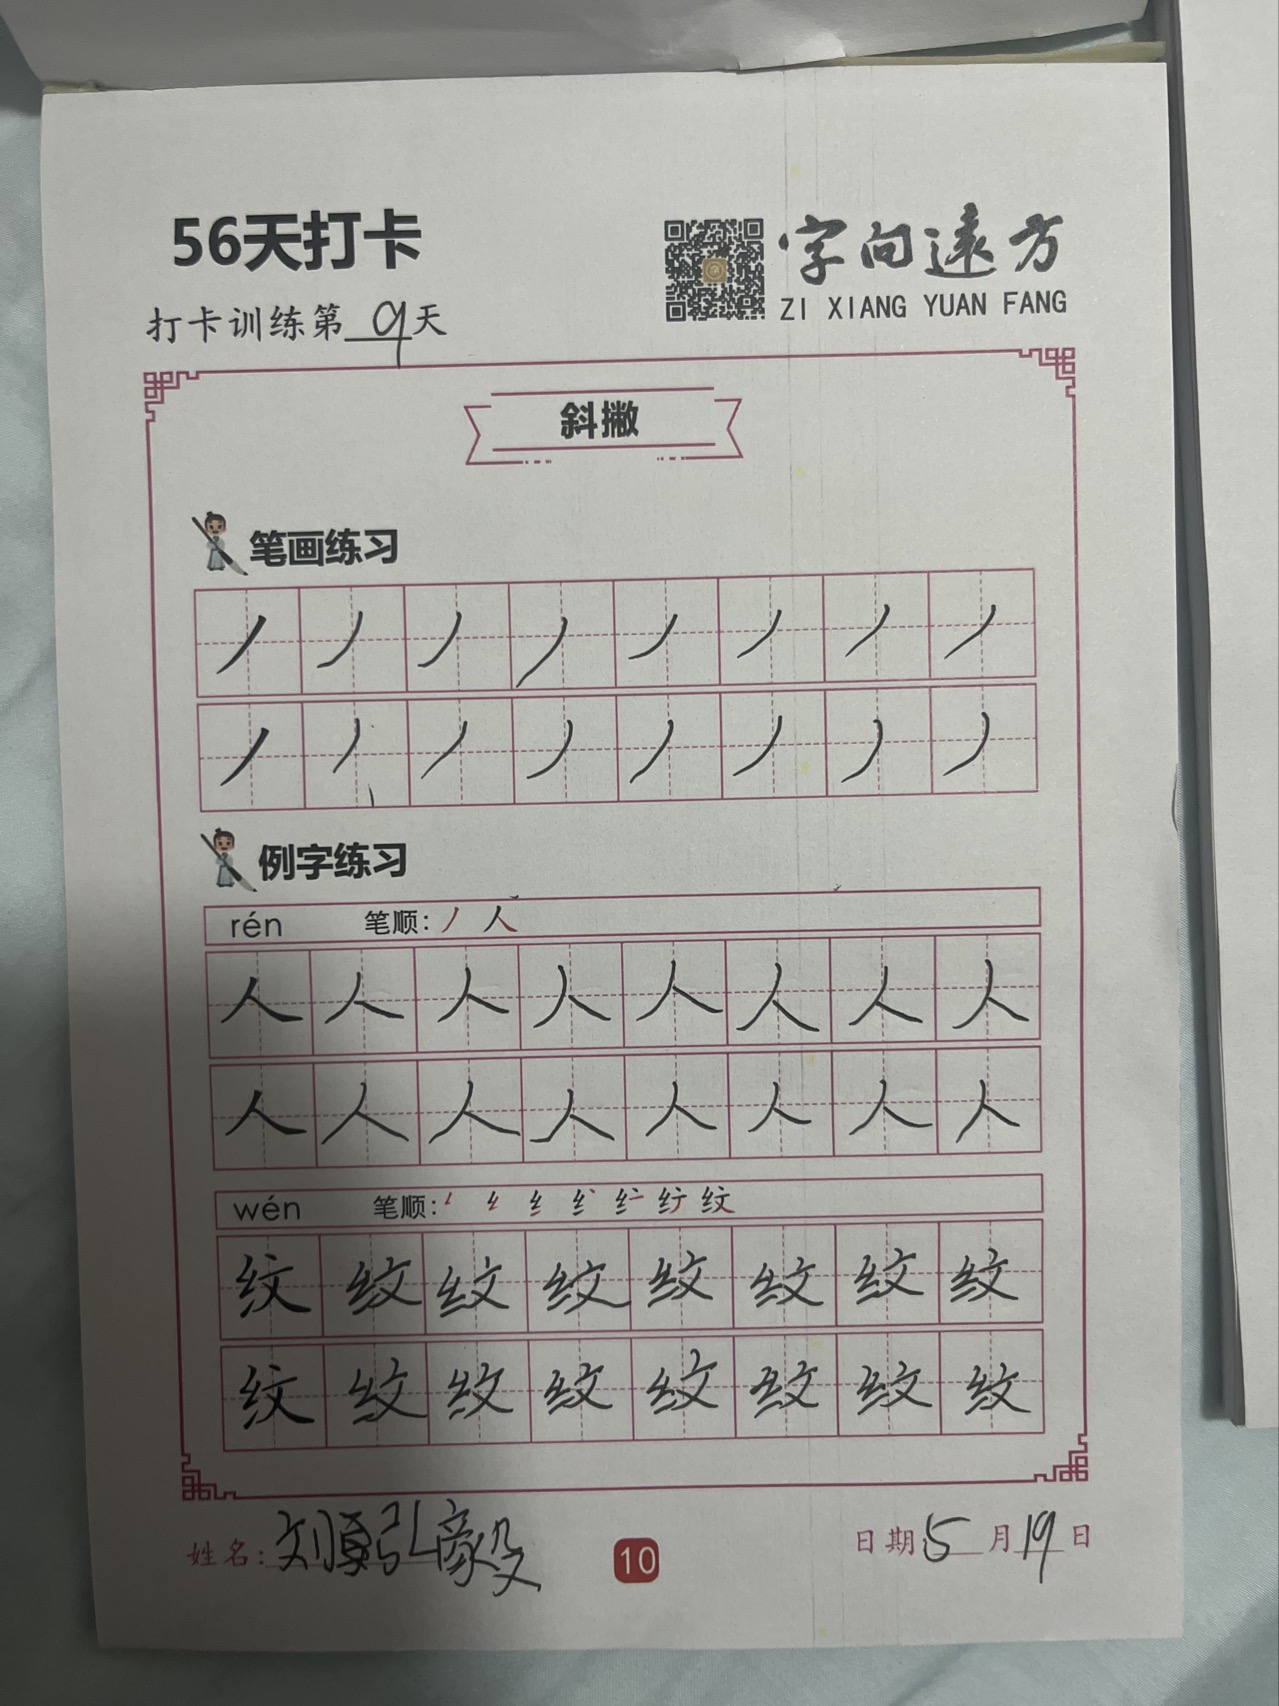 56天打卡
字向远方
ZI XIANG YUAN FANG
打卡训练第9天
斜撇
笔画练习
丿丿丿丿丿丿丿丿
丿丿丿丿丿丿丿丿
例字练习
rén 笔顺:丿 人
人人人人人人人人
人人人人人人人人
wén 笔顺:
纹纹纹纹纹纹纹纹
纹纹纹纹纹纹纹纹
姓名:刘 弘毅
10
日期:5月19日